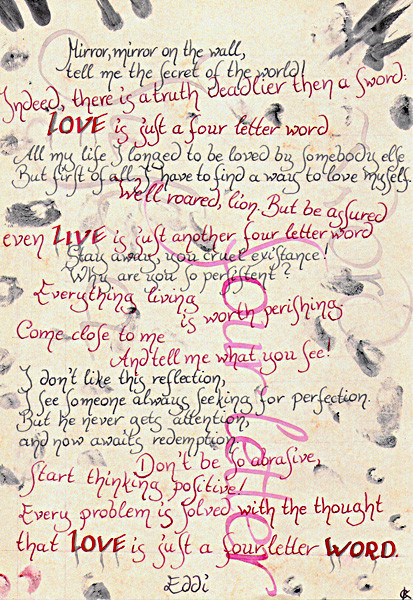 Mirror, mirror on the wall,
tell me the secret of the world!
Indeed, there is a truth deadlier then a sword:
LOVE is just a four letter word
All my life I longed to be loved by somebody else
But first of all I have to find a way to love myself.
Well roared, lion. But be assured
even LIVE is just another four letter word
Stay away, you cruel existance!
Why are you so persistent?
Everything living
is worth perishing.
Come close to me
And tell me what you see!
I don't like this reflection,
I see someone always seeking for perfection.
But he never gets attention,
and now awaits redemption.
Don't be so abrasive,
start thinking positive!
Every problem is solved with the thought
that LOVE is just a four letter WORD.
Eddi
four letter